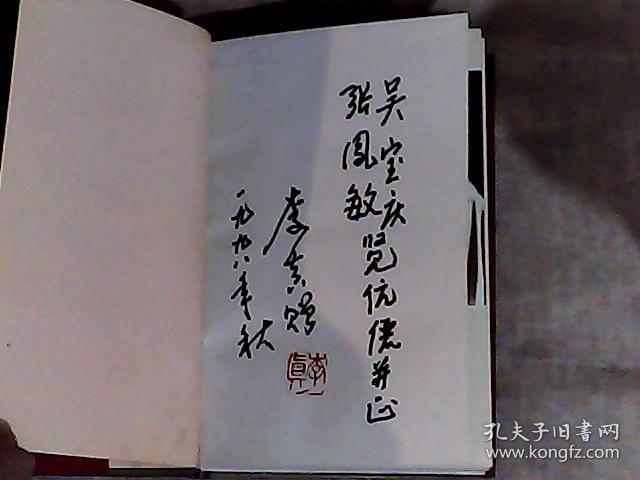 吴宝庆
张凤敏贤伉俪并正
李真赠
一九九八年秋
李真
孔夫子旧书网
www.kongfz.com